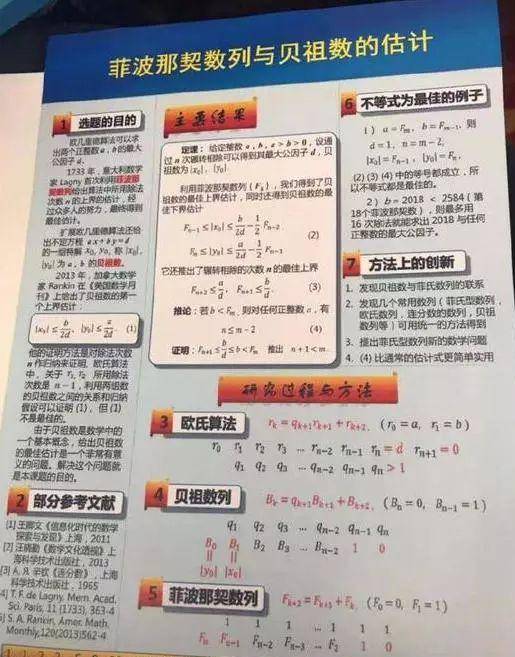 菲波那契数列与贝祖数的估计
1 选题的目的
欧几里德算法可以求
出两个正整数 a,b 的最大
公因子 d.
1733 年,意大利数学
家 Lagny 首次利用菲波那
契数列给出算法中所用除法
次数 n 的上界的估计,经
过众多人的努力,最终得到
最佳估计。
扩展欧几里德算法还给
出不定方程 ax+by=d
的一组特解 x₀, y₀, 称 |x₀|,
|y₀| 为 a,b 的贝祖数。
2013 年,加拿大数学
家 Rankin 在《美国数学月
刊》上给出了贝祖数的第一
个上界估计:
|x₀| ≤ b/2d, |y₀| ≤ a/2d. (1)
他的证明方法是对除法次数
n 作归纳来证明,欧几里德算法
中,关于 r₁, r₂ 所用除法
次数是 n−1,利用两组数
的贝祖数之间的关系和归纳
假设可以证明 (1),但 (1)
不是最佳的。
由于贝祖数是数学中的
一个基本概念,给出贝祖数
的最佳估计是一个非常有意
义的问题。解决这个问题就
是本课题的目的。
2 部分参考文献
[1] 王卿文《信息化时代的数学
探索与发现》上海,2011
《数学文化透视》上
海科学技术出版社,2013
[3] A. Я. 辛钦《连分数》,上海
科学技术出版社,1965
4] T. F. de Lagny, Mem. Acad.
Sci. Paris, 11 (1733), 363-4
5] S. A. Rankin, Amer. Math.
Monthly, 120(2013)562-4
主要结果
定理:给定整数 a,b,a>b>0,设通
过 n 次辗转相除可以得到其最大公因子 d,贝
祖数为 |x₀|,|y₀|.
利用菲波那契数列 {Fₖ},我们得到了贝
祖数的最佳上界估计,同时还得到贝祖数的最
佳下界估计
Fₙ₋₁ ≤ |x₀| ≤ b/2d − 1/2 Fₙ₋₂
(2)
Fₙ ≤ |y₀| ≤ a/2d − 1/2 Fₙ₋₁
它还推出了辗转相除的次数 n 的最佳上界
Fₙ₊₂ ≤ a/d, Fₙ₊₁ ≤ b/d. (3)
推论:若 b < Fₘ,则对任何正整数 a,有
n ≤ m − 2 (4)
证明:Fₙ₊₁ ≤ b/d ≤ b < Fₘ 推出 n+1 < m.
6 不等式为最佳的例子
1) a = Fₘ, b = Fₘ₋₁, 则
d = 1, n = m − 2,
|x₀| = Fₙ₋₁, |y₀| = Fₙ,
(2) (3) (4) 中的等号都成立,所
以不等式都是最佳的。
2) b = 2018 < 2584(第
18个菲波那契数),则最多用
16 次除法就能求出 2018 与任何
正整数的最大公因子。
7 方法上的创新
1. 发现贝祖数与菲氏数列的联系
2. 发现几个常用数列(菲氏型数列,
欧氏数列,连分数的数列,贝祖
数列等)可用统一的方法得到
3. 提出菲氏型数列新的数学问题
4. (4) 比通常的估计式更简单实用
研究过程与方法
3 欧氏算法 rₖ = qₖ₊₁rₖ₊₁ + rₖ₊₂, (r₀ = a, r₁ = b)
r₀ r₁ r₂ r₃ … rₙ₋₂ rₙ₋₁ rₙ = d rₙ₊₁ = 0
q₁ q₂ q₃ … qₙ₋₂ qₙ₋₁ qₙ > 1
4 贝祖数列 Bₖ = qₖ₊₁Bₖ₊₁ + Bₖ₊₂, (Bₙ = 0, Bₙ₋₁ = 1)
q₁ q₂ q₃ … qₙ₋₂ qₙ₋₁ qₙ
B₀ B₁ B₂ B₃ … Bₙ₋₂ 1 0
|| ||
|y₀| |x₀|
5 菲波那契数列 Fₖ₊₂ = Fₖ₊₁ + Fₖ, (F₀ = 0, F₁ = 1)
1 1 1 … 1 1 1
Fₙ Fₙ₋₁ Fₙ₋₂ Fₙ₋₃ … F₂ 1 0